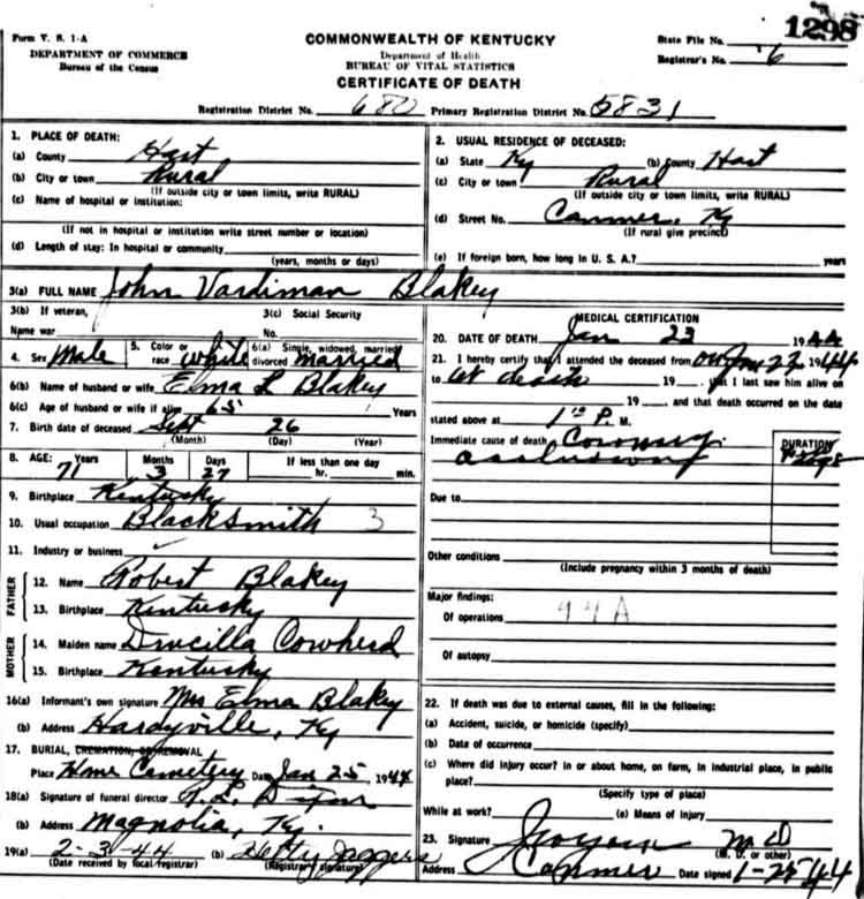 Form V. S. 1-A
DEPARTMENT OF COMMERCE
Bureau of the Census
COMMONWEALTH OF KENTUCKY
Department of Health
BUREAU OF VITAL STATISTICS
CERTIFICATE OF DEATH
1298
State File No.
Registrar's No. 6
Registration District No. 680 Primary Registration District No. 5831
1. PLACE OF DEATH:
(a) County Hart
(b) City or town Rural
(If outside city or town limits, write RURAL)
(c) Name of hospital or institution:
(If not in hospital or institution write street number or location)
(d) Length of stay: In hospital or community
(years, months or days)
2. USUAL RESIDENCE OF DECEASED:
(a) State Ky (b) County Hart
(c) City or town Rural
(If outside city or town limits, write RURAL)
(d) Street No. Canmer, Ky
(If rural give precinct)
(e) If foreign born, how long in U. S. A.? years
3(a) FULL NAME John Vardiman Blakey
3(b) If veteran, 3(c) Social Security
Name war No.
4. Sex Male 5. Color or race white 6(a) Single, widowed, married, divorced married
6(b) Name of husband or wife Elma L Blakey
6(c) Age of husband or wife if alive 65 Years
7. Birth date of deceased Sept 26
(Month) (Day) (Year)
8. AGE: Years Months Days If less than one day
71 3 27 hr. min.
9. Birthplace Kentucky
10. Usual occupation Blacksmith 3
11. Industry or business
FATHER
12. Name Robert Blakey
13. Birthplace Kentucky
MOTHER
14. Maiden name Drucilla Cowherd
15. Birthplace Kentucky
16(a) Informant's own signature Mrs Elma Blakey
(b) Address Hardyville, Ky
17. BURIAL, CREMATION, OR REMOVAL
Place Home Cemetery Date Jan 25, 1944
18(a) Signature of funeral director
(b) Address Magnolia, Ky.
19(a) 2-3-44 (b) Hetty Jaggers
(Date received by local registrar) (Registrar's signature)
MEDICAL CERTIFICATION
20. DATE OF DEATH Jan 23 1944
21. I hereby certify that I attended the deceased from Jan 22 1944
to at death 19 that I last saw him alive on
19 and that death occurred on the date
stated above at P. M.
Immediate cause of death Coronary
DURATION
Due to
Other conditions
(Include pregnancy within 3 months of death)
Major findings:
Of operations 94A
Of autopsy
22. If death was due to external causes, fill in the following:
(a) Accident, suicide, or homicide (specify)
(b) Date of occurrence
(c) Where did injury occur? In or about home, on farm, in industrial place, in public
place?
(Specify type of place)
While at work? (e) Means of Injury
23. Signature M D
(M. D. or other)
Address Canmer Date signed 1-25-44